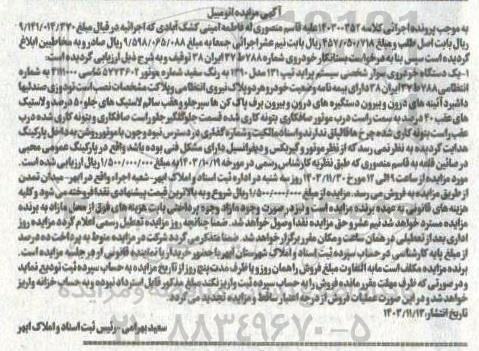 آگهی مزایده اتومبیل
به موجب پرونده اجرائی کلاسه ۱۴۰۳۰۰۳۵۲ علیه قاسم منصوری له فاطمه امینی کشگ آبادی که اجرائیه در قبال مبلغ ۹/۱۴۱/۰۱۴/۳۷۰
ریال بابت اصل طلب و مبلغ ۴۵۷/۰۵۰/۷۱۸ ریال بابت نیم عشر اجرائی جمعا به مبلغ ۹/۵۹۸/۰۶۵/۰۸۸ ریال صادر و به مخاطبین ابلاغ
گردیده است سپس بنا به درخواست بستانکار خودروی شماره ۷۸۸ ط ۳۷ ایران ۳۸ توقیف و به شرح ذیل ارزیابی گردیده است:
۱-یک دستگاه خودروی سوار شخصی سیستم پراید تیپ ۱۳۱ مدل ۱۳۹۰ به رنگ سفید شماره موتور ۵۵۷۳۶۰۲ شاسی ۳۱۱۱۰۰۰۰ به شماره
انتظامی ۷۸۸ ط ۳۷ ایران ۳۸ دارای بیمه نامه وضعیت خودرو هر دو پلاک نیروی انتظامی و پلاکت مشخصات نصب است تودوزی صندلیها
داشبرد آئینه های درون و بیرون دستگیره های درون و بیرون برف پاک کن ها سپر جلو و عقب سالم لاستیک های جلو ۵۰ درصد و لاستیک
های عقب ۴۰ درصد به سمت راست درب موتور صافکاری بتونه کاری شده قسمت جلو گلگیر جلو راست صافکاری و بتونه کاری شده درب
عقب راست بتونه کاری شده چرخ ها قالپاق ندارند و اسناد مالکیت و شماره گذاری در دسترس نبود و چون با موتور روشن به داخل پارکینگ
هدایت گردیده به نظر نمی رسد که از نظر موتور و گیربکس و دیفرانسیل دارای مشکل فنی بوده باشد واقع در پارکینگ عمومی محبی
در صائین قلعه به قاسم منصوری که طبق نظریه کارشناس رسمی در مورخه ۱۴۰۳/۱۰/۱۹ به مبلغ ۱/۵۰۰/۰۰۰/۰۰۰ ریال ارزیابی شده است.
مورد مزایده از ساعت ۹ الی ۱۲ مورخ ۱۴۰۳/۱۱/۳۰ روز سه شنبه در اداره ثبت اسناد و املاک ابهر-شعبه اجراء واقع در ابهر-میدان تمدن
از طریق مزایده به فروش می رسد. مزایده از مبلغ ۱/۵۰۰/۰۰۰/۰۰۰ ریال شروع و به بالاترین قیمت پیشنهادی نقدا فروخته می شود و کلیه
هزینه های قانونی به عهده برنده مزایده است و نیز در صورت وجود مازاد وجوه پرداختی بابت هزینه های فوق از محل مازاد به برنده
مزایده مسترد خواهد شد نیم عشر و حق مزایده نقدا وصول خواهد شد. ضمنا چنانچه روز مزایده تعطیل رسمی اعلام گردد مزایده روز
اداری بعد از تعطیلی در همان ساعت و مکان مقرر برگزار خواهد شد. ضمنا متذکر می گردد شرکت در مزایده منوط به پرداخت ده درصد
از مبلغ پایه کارشناسی در حساب سپرده ثبت اسناد و املاک شهرستان ابهر با حضور خریدار یا نماینده قانونی او در جلسه مزایده است.
برنده مزایده مکلف است مابه التفاوت مبلغ فروش را همان روز و یا ظرف مدت پنج روز از تاریخ مزایده به حساب سپرده ثبت تودیع نماید
و در صورتی که ظرف مهلت مقرر مانده فروش را به حساب سپرده ثبت واریز نکند مبلغ مذکور قابل استرداد نبوده و به حساب خزانه واریز
خواهد شد و در این صورت عملیات فروش از درجه اعتبار ساقط و مزایده تجدید می گردد.
تاریخ انتشار: ۱۴۰۳/۱۱/۱۳
سعید بهرامی-رئیس ثبت اسناد و املاک ابهر
۰۲۱-۸۸۳۴۹۶۷۰-۵